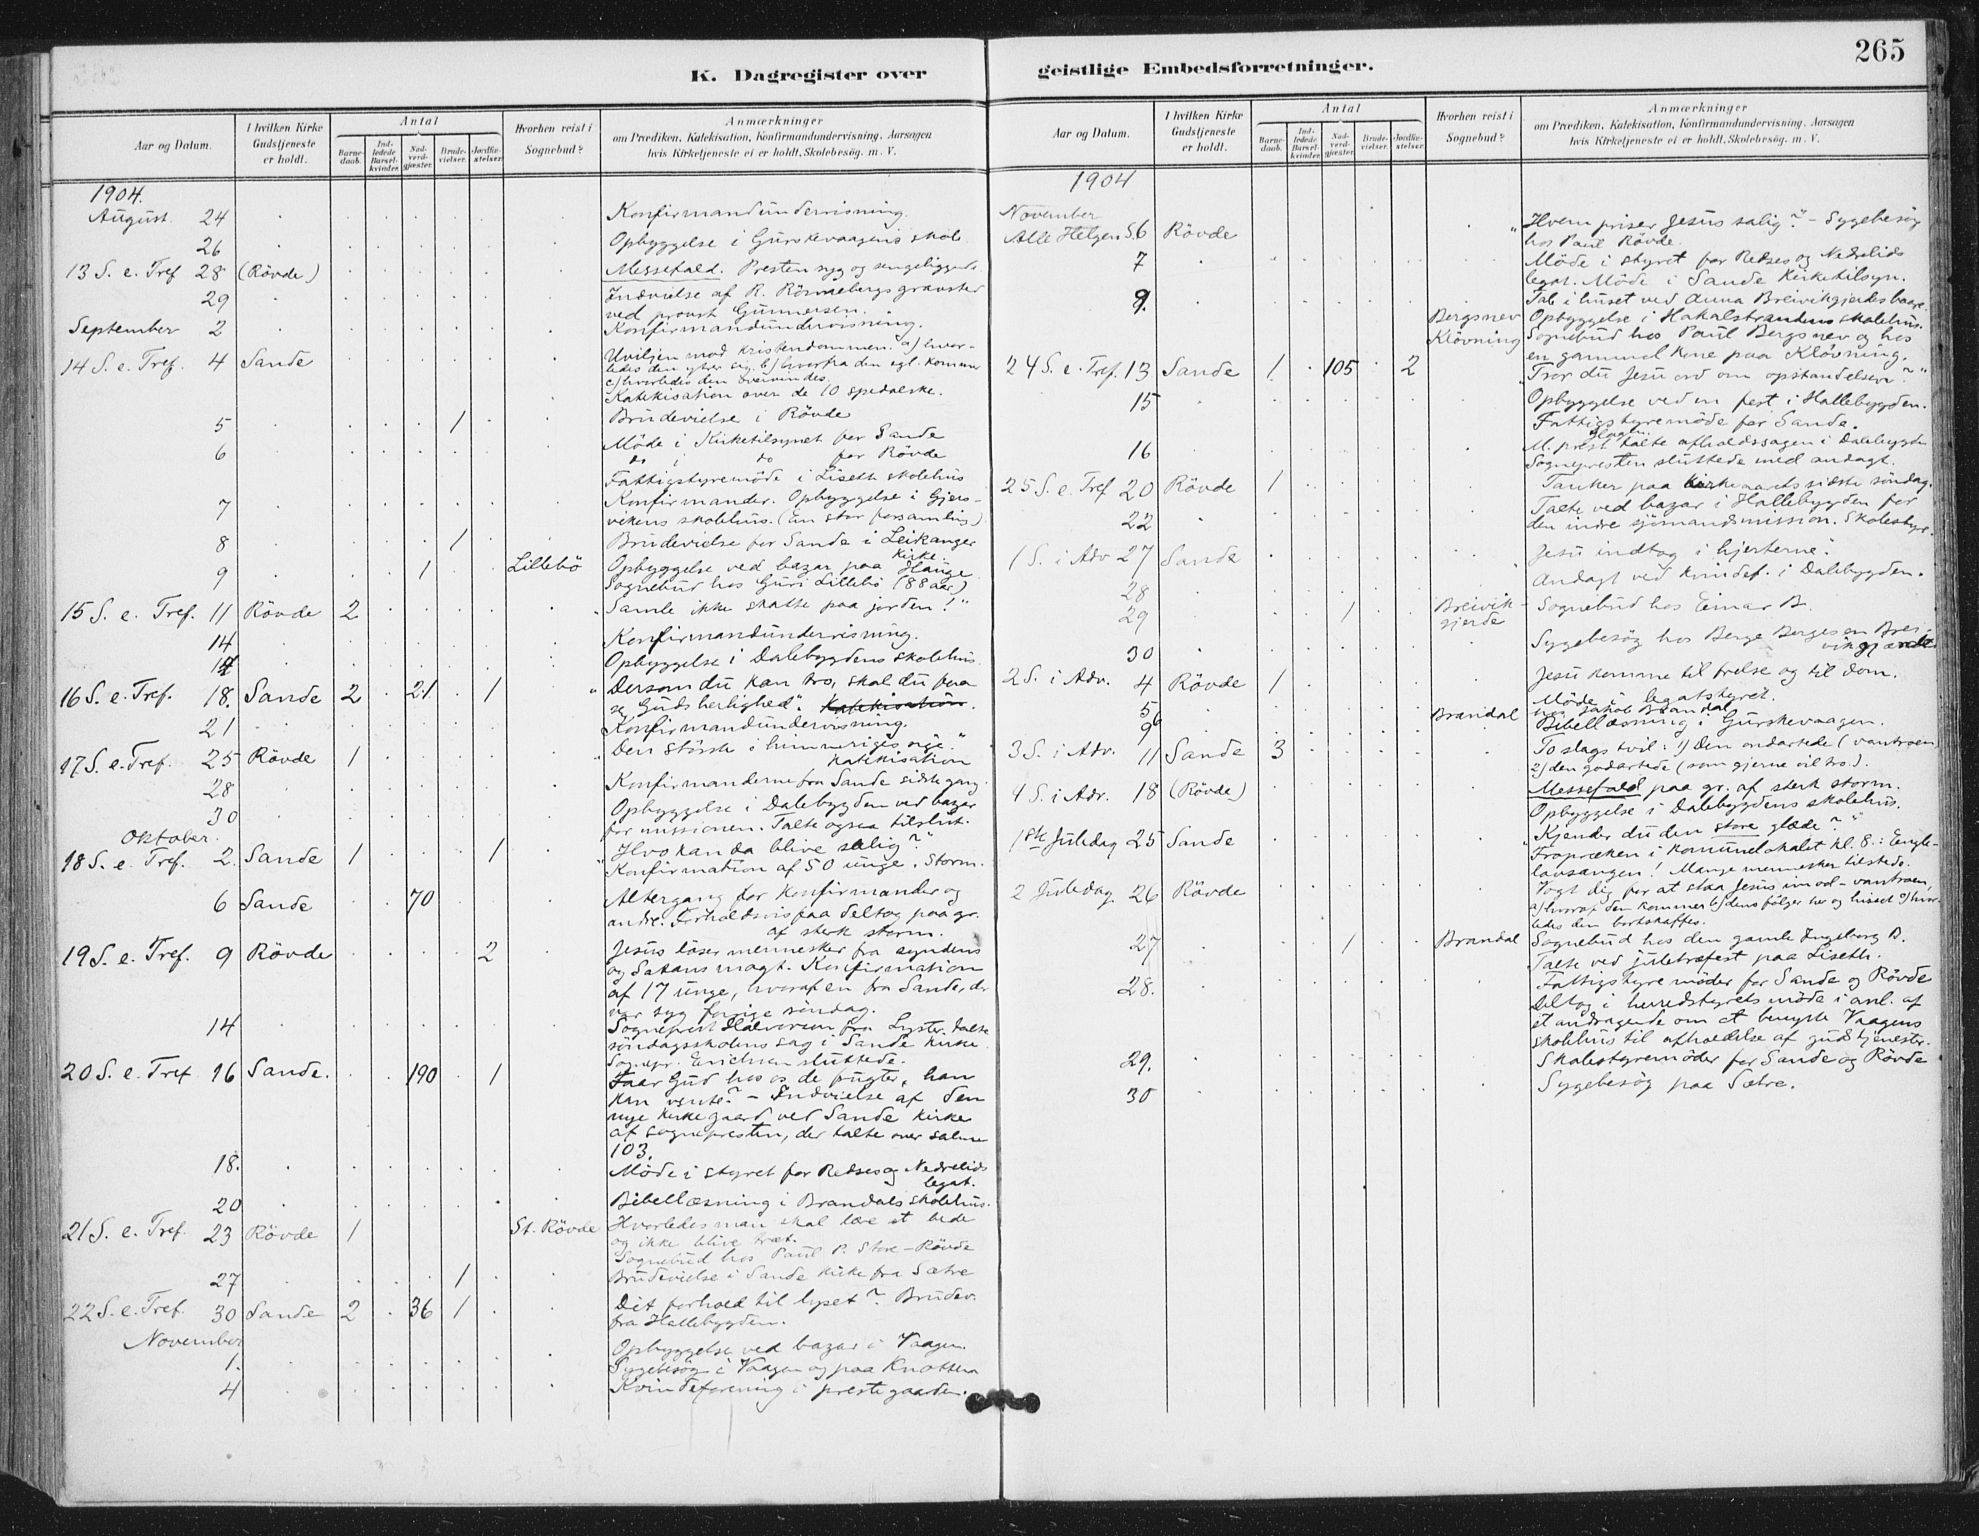 265
K. Dagregister over
geistlige Embedsforretninger.
Aar og Datum.
I hvilken Kirke Gudstjeneste er holdt.
Antal
Barne-daab.
Ind-ledede Barsel-kvinder.
Nad-verd-gjester.
Brude-vielser.
Jordfæ-stelser.
Hvorhen reist i Sognebud?
Anmærkninger
om Prædiken, Katekisation, Konfirmandundervisning, Aarsagen
hvis Kirketjeneste ei er holdt, Skolebesøg. m. V.
1904.
August 24 Konfirmandundervisning.
26 Opbyggelse i Gurskevaagens skole.
13 S. e. Tref 28 (Rövde) Messefald. Presten syg og sengeliggende.
29 Indvielse af R. Rönnebergs gravsted
ved provst Gunnersen.
September 2 Konfirmandundervisning.
14 S. e. Tref. 4 Sande Uviljen mod kristendommen: a) hvor-
ledes den ytrer sig, b) hvorfra den egl. kommer
c) hvorledes den overvindes.
Katekisation over de 10 spedalske.
5 1 Brudevielse i Rövde
6 Möde i Kirketilsynet for Sande
do i do for Rövde
Fattigstyremöde i Liseth skolehus
7 Konfirmander. Opbyggelse i Gjers-
vikens skolehus. (En stor forsamling)
8 1 Brudevielse for Sande i Leikanger
kirke.
9 1 Lillebö Opbyggelse ved bazar paa Hauge
Sognebud hos Guri Lillebö (88 aar)
15 S. e. Tref. 11 Rövde 2 "Samle ikke skatte paa jorden!"
14 Konfirmandundervisning.
Opbyggelse i Dalebygdens skolehus.
16 S. e. Tref. 18. Sande 2 21 1 "Dersom du kan tro, skal du faa
se Guds herlighed". Katekisation.
21 Konfirmandundervisning.
17 S. e. Tref. 25 Rövde 1 "Den störste i himmeriges rige."
Katekisation
28 Konfirmanderne fra Sande sidste gang.
30 Opbyggelse i Dalebygden ved bazar
for missionen. Talte ogsaa tilslut.
Oktober.
18 S. e. Tref. 2 Sande 1 1 "Hvo kan da blive salig?"
Konfirmation af 50 unge. Storm.
6 Sande 70 Altergang for konfirmander og
andre. Forholdsvis faa deltog paa gr.
af sterk storm.
19 S. e. Tref. 9 Rövde 2 Jesus löser mennesker fra syndens
og Satans magt. Konfirmation
af 17 unge, hvoraf en fra Sande, der
var syg forrige söndag.
14 Sogneprest Halvorsen fra Lyster talte
söndagsskolens sag i Sande kirke
Sognepr. Erichsen sluttede.
20 S. e. Tref 16 Sande. 190 1 Faar Gud hos os de frugter, han
kan vente? – Indvielse af den
nye kirkegaard ved Sande kirke
af sognepresten, der talte over salme
103.
18. Möde i styret for Redses og Nedrelids
legat.
20 Bibellæsning i Brandals skolehus.
21 S. e. Tref. 23 Rövde 1 St. Rövde Hvorledes man skal lære at bede
og ikke blive træt.
Sognebud hos Paul P. Store-Rövde
27 1 Brudevielse i Sande kirke fra Sætre
22 S. e. Tref. 30 Sande 2 36 1 Dit forhold til lyset? Brudev.
fra Hallebygden.
November
1. Opbyggelse ved bazar i Vaagen.
Sygebesög i Vaagen og paa Knotten
4 Kvindeforening i prestegaarden.
Aar og Datum.
I hvilken Kirke Gudstjeneste er holdt.
Antal
Barne-daab.
Ind-ledede Barsel-kvinder.
Nad-verd-gjester.
Brude-vielser.
Jordfæ-stelser.
Hvorhen reist i Sognebud?
Anmærkninger
om Prædiken, Katekisation, Konfirmandundervisning. Aarsagen
hvis Kirketjeneste ei er holdt, Skolebesøg. m. V.
1904
November
Alle Helgen S. 6 Rövde "Hvem priser Jesus salig?" – Sygebesög
hos Paul Rövde.
7 Möde i styret for Redses og Nedrelids
legat. Möde i Sande Kirketilsyn.
9. Tale i huset ved Anna Breivikgjerdes baare.
Bergsnev Opbyggelse i Hakalstrandens skolehus.
Klövning Sognebud hos Paul Bergsnev og hos
en gammel kone paa Klövning.
24 S. e. Tref. 13 Sande 1 105 2 "Tror du Jesu ord om opstandelsen?"
15 Opbyggelse ved en fest i Hallebygden.
Fattigstyremöde for Sande.
16 M. prest talte afholdssagen i Dalebygden
Sognepresten sluttede med andagt.
25 S. e. Tref 20 Rövde 1 Tanker paa kirkeaarets sidste söndag.
22 Talte ved bazar i Hallebygden for
den indre sjömandsmission. Skolestyr.
1 S. i Adv 27 Sande Jesu indtog i hjerterne.
28 Andagt ved kvindef. i Dalebygden.
29 1 Breivik-gjerde Sognebud hos Einar B.
30 Sygebesög hos Berge Bergesen Brei-
vikgjerdet
2 S. i Adv. 4 Rövde 1 Jesu komme til frelse og til dom.
5 Möde i legatstyret.
6 Brandal hos Jakob Brandal
9 Bibellæsning i Gurskevaagen.
3 S. i Adv. 11 Sande 3 To slags tvil: 1) Den ondartede (vantroen)
2) den godartede (som gjerne vil tro.).
4 S. i Adv. 18 (Rövde) Messefald paa gr. af sterk storm.
Opbyggelse i Dalebygdens skolehus.
1ste Juledag 25 Sande "Kjender du den store glæde?"
Fropræken i komunelokalet kl. 8: Engle-
lovsangen! Mange mennesker tilstede.
2 Juledag 26 Rövde Vogt dig for at staa Jesus imod – vantroen,
a) hvoraf den kommer b) dens fölger her og hisset c) hvor-
ledes den bortskaffes.
27 1 Brandal Sognebud hos den gamle Ingeborg B.
Talte ved juletræfest paa Liseth.
28. Fattigstyremöder for Sande og Rövde
Deltog i herredstyrets möde i anl. af
et andragende om at benytte Vaagens
skolehus til afholdelse af gudstjenester.
29. Skolestyremöder for Sande og Rövde
30 Sygebesög paa Sætre.